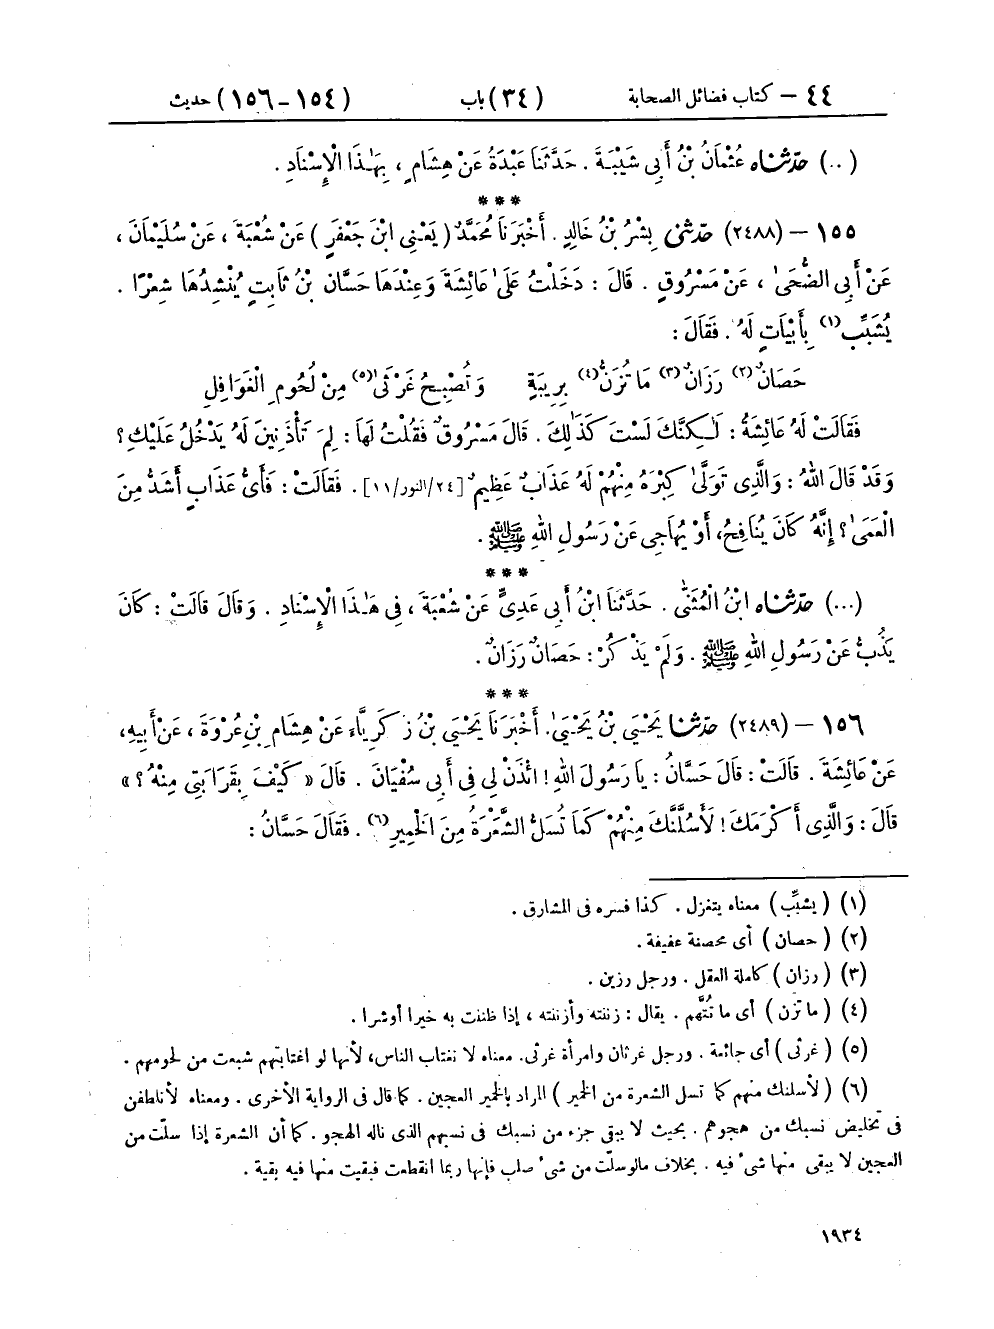 ٤٤ – كتاب فضائل الصحابة (٣٤) باب (١٥٤–١٥٦) حديث
(٠٠) حدّثناه عُثْمَانُ بْنُ أَبِى شَيْبَةَ . حَدَّثَنَا عَبْدَةُ عَنْ هِشَامٍ ، بِهَـٰذَا الْإِسْنَادِ .
***
١٥٥ – (٢٤٨٨) حدّثنى بِشْرُ بْنُ خَالِدٍ . أَخْبَرَنَا مُحَمَّدٌ ( يَعْنِى ابْنَ جَعْفَرٍ ) عَنْ شُعْبَةَ ، عَنْ سُلَيْمَانَ ،
عَنْ أَبِى الضُّحَىٰ ، عَنْ مَسْرُوقٍ . قَالَ : دَخَلْتُ عَلَىٰ عَائِشَةَ وَعِنْدَهَا حَسَّانُ بْنُ ثَابِتٍ يُنْشِدُهَا شِعْرًا .
يُشَبِّبُ(١) بِأَبْيَاتٍ لَهُ . فَقَالَ :
حَصَانٌ(٢) رَزَانٌ(٣) مَا تُزَنُّ(٤) بِرِيبَةٍ وَتُصْبِحُ غَرْثَىٰ(٥) مِنْ لُحُومِ الْغَوَافِلِ
فَقَالَتْ لَهُ عَائِشَةُ : لَـٰكِنَّكَ لَسْتَ كَذَٰلِكَ . قَالَ مَسْرُوقٌ فَقُلْتُ لَهَا : لِمَ تَأْذَنِينَ لَهُ يَدْخُلُ عَلَيْكِ ؟
وَقَدْ قَالَ اللهُ : وَالَّذِى تَوَلَّىٰ كِبْرَهُ مِنْهُمْ لَهُ عَذَابٌ عَظِيمٌ [٢٤/النور/١١] . فَقَالَتْ : فَأَىُّ عَذَابٍ أَشَدُّ مِنَ
الْعَمَىٰ ؟ إِنَّهُ كَانَ يُنَافِحُ، أَوْ يُهَاجِى عَنْ رَسُولِ اللهِ ﷺ .
***
(...) حدّثناه ابْنُ الْمُثَنَّى . حَدَّثَنَا ابْنُ أَبِى عَدِىٍّ عَنْ شُعْبَةَ ، فِى هَـٰذَا الْإِسْنَادِ . وَقَالَ قَالَتْ : كَانَ
يَذُبُّ عَنْ رَسُولِ اللهِ ﷺ . وَلَمْ يَذْكُرْ : حَصَانٌ رَزَانٌ .
***
١٥٦ – (٢٤٨٩) حدّثنا يَحْيَىٰ بْنُ يَحْيَىٰ . أَخْبَرَنَا يَحْيَىٰ بْنُ زَكَرِيَّاءَ عَنْ هِشَامِ بْنِ عُرْوَةَ ، عَنْ أَبِيهِ ،
عَنْ عَائِشَةَ . قَالَتْ : قَالَ حَسَّانُ : يَا رَسُولَ اللهِ ! ائْذَنْ لِى فِى أَبِى سُفْيَانَ . قَالَ « كَيْفَ بِقَرَابَتِى مِنْهُ ؟ »
قَالَ : وَالَّذِى أَكْرَمَكَ ! لَأَسُلَّنَّكَ مِنْهُمْ كَمَا تُسَلُّ الشَّعْرَةُ مِنَ الْخَمِيرِ(٦) . فَقَالَ حَسَّانُ :
(١) ( يشبِّب ) معناه يتغزل . كذا فسره فى المشارق .
(٢) ( حصان ) أى محصنة عفيفة .
(٣) ( رزان ) كاملة العقل . ورجل رزين .
(٤) ( ما تزن ) أى ما تُتَّهم . يقال : زننته وأزننته ، إذا ظننت به خيرا أو شرا .
(٥) ( غرثى ) أى جائعة . ورجل غرثان وامرأة غرثى. معناه لا تغتاب الناس، لأنها لو اغتابتهم شبعت من لحومهم .
(٦) ( لأسلنك منهم كما تسل الشعرة من الخمير ) المراد بالخمير العجين . كما قال فى الرواية الأخرى . ومعناه لأتلطفن
فى تخليص نسبك من هجوهم . بحيث لا يبقى جزء من نسبك فى نسبهم الذى ناله الهجو . كما أن الشعرة إذا سلّت من
العجين لا يبقى منها شىء فيه . بخلاف ما لو سلّت من شىء صلب فإنها ربما انقطعت فبقيت منها فيه بقية .
١٩٣٤